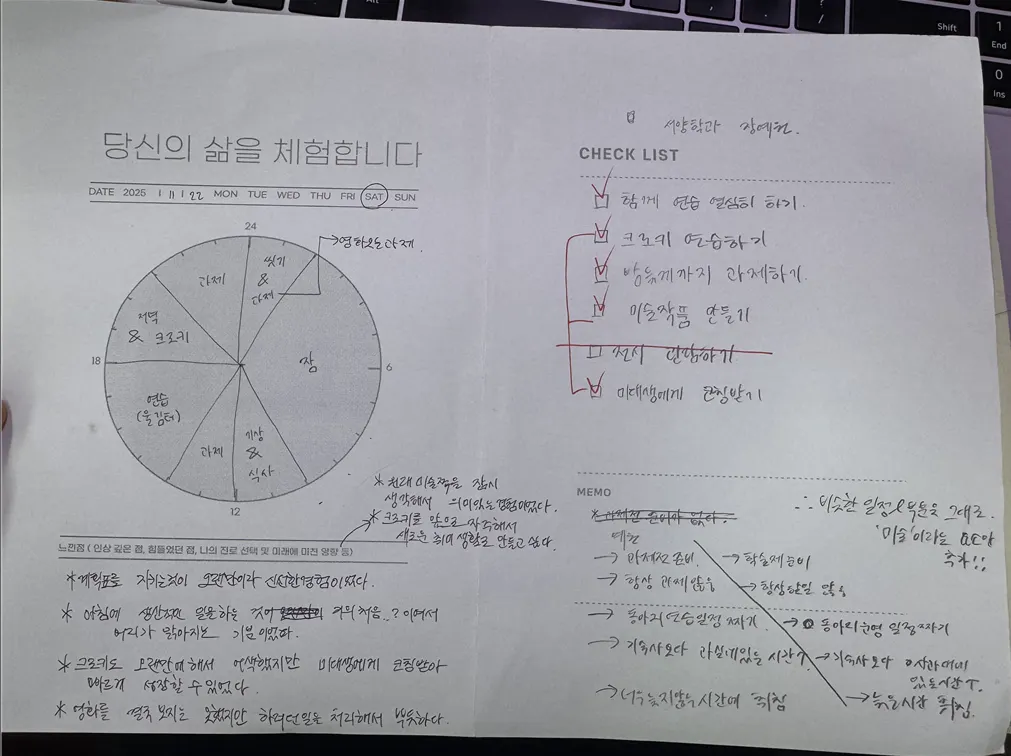 당신의 삶을 체험합니다
DATE 2025 | 11 | 22 MON TUE WED THU FRI SAT SUN
24
→영화or과제.
과제
씻기
&
과제
저녁
& 크로키
잠
18
6
연습
(울림터)
과제
기상
&
식사
12
* 원래 미술쪽을 잠시
생각해서 의미있는경험이었다.
* 크로키를 앞으로 자주해서
새로운 취미생활로 만들고 싶다.
느낀점 ( 인상 깊은 점, 힘들었던 점, 나의 진로 선택 및 미래에 미친 영향 등)
*계획표를 지키는것이 오랜만이라 신선한경험이었다.
* 아침에 생산적인 일을하는 것이 거의 처음..? 이어서
머리가 맑아지는 기분이었다.
*크로키도 오랜만에해서 어색했지만 미대생에게 코칭받아
빠르게 성장할 수 있었다.
* 영화를 결국 보지는 못했지만 하려던일을 처리해서 뿌듯하다.
서양학과 장예원.
CHECK LIST
함께 연습 열심히 하기.
크로키 연습하기
밤늦게까지 과제하기.
미술작품 만들기
전시 관람하기
미대생에게 코칭받기
MEMO
∴ 비슷한 일정&루틴은 그대로.
'미술'이라는 요소만
추가!!
예원
→ 과제전 준비.
→ 학술제 준비
→ 항상 과제 많음
→ 항상 할일 많음
→ 동아리 연습일정 짜기.
→ 동아리 운영 일정짜기
→ 기숙사보다 과실에있는 시간↑.
→ 기숙사보다
있는시간↑.
→너무늦지않는시간에 취침
→늦은시간 취침.
Shift
1
End
0
Ins